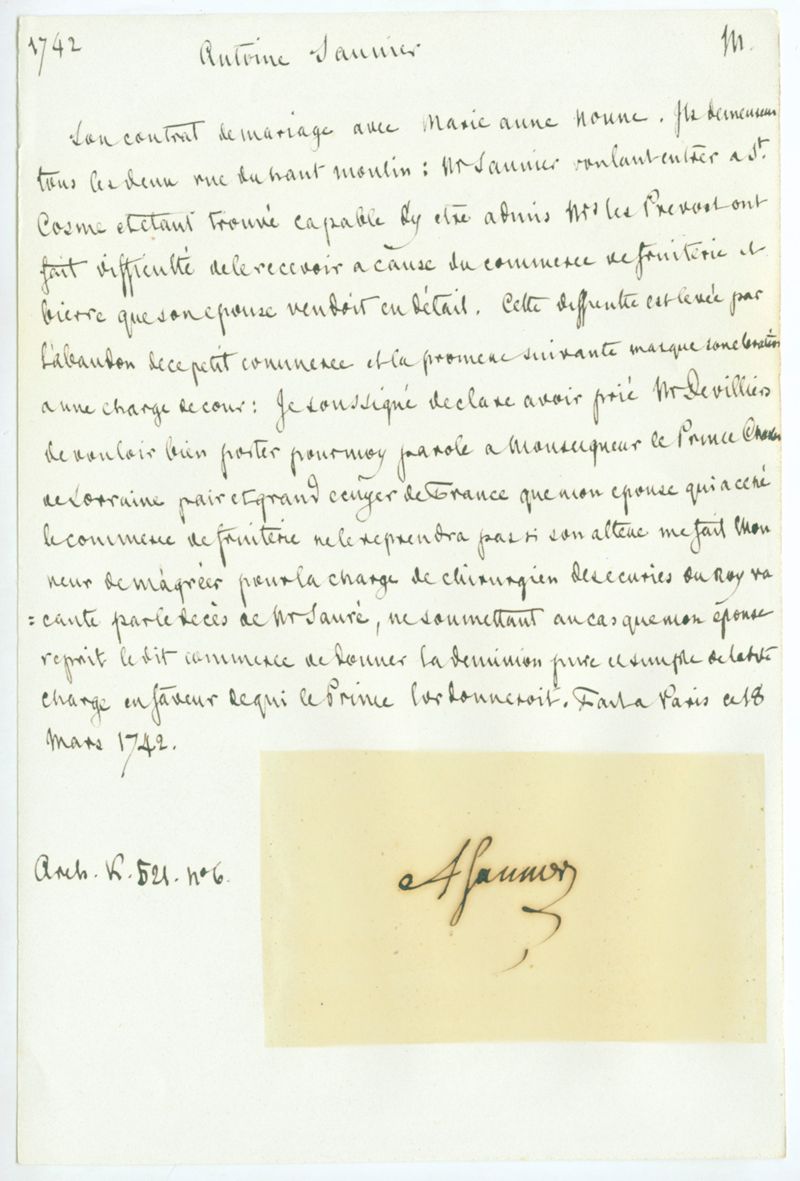 1742 Antoine Saunier M.
Son contrat de mariage avec Marie anne Nonne. Ils demeurent
tous les deux rue du haut moulin : Mr Saunier voulant entrer a St.
Cosme et etant trouvé capable d'y etre admis Mrs les Prevost ont
fait difficulté de le recevoir a cause du commerce de fruiterie et
bierre que son epouse vendoit en détail. Cette difficulté est levée par
l'abandon de ce petit commerce et la promesse suivante
a une charge de cour : Je soussigné declare avoir prié Mr Devilliers
de vouloir bien porter pour moy parole a Monseigneur le Prince Charles
de Lorraine pair et grand ecuyer de France que mon epouse qui a cessé
le commerce de fruiterie ne le reprendra pas si son altesse me fait l'hon
neur de m'agréer pour la charge de chirurgien des ecuries du Roy va
=cante par le decès de Mr Sauré, me soumettant au cas que mon épouse
reprit le dit commerce de donner la demission pure et simple de la dite
charge en faveur de qui le Prince l'ordonneroit. Fait a Paris ce 18
Mars 1742.
Arch. V. 521. no 6.
A Saunier